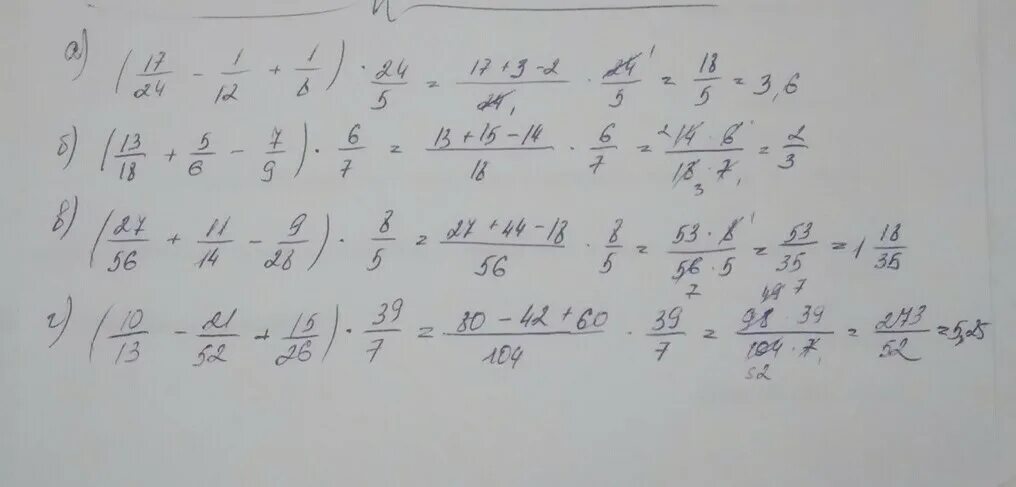 а) (17/24 - 1/12 + 1/8) · 24/5 = (17+3-2)/24 · 24/5 = 18/5 = 3,6
б) (13/18 + 5/6 - 7/9) · 6/7 = (13+15-14)/18 · 6/7 = (14·6)/(18·7) = 2/3
в) (27/56 + 11/14 - 9/28) · 8/5 = (27+44-18)/56 · 8/5 = (53·8)/(56·5) = 53/35 = 1 18/35
г) (10/13 - 21/52 + 15/26) · 39/7 = (80-42+60)/104 · 39/7 = (98·39)/(104·7) = 273/52 = 5,25